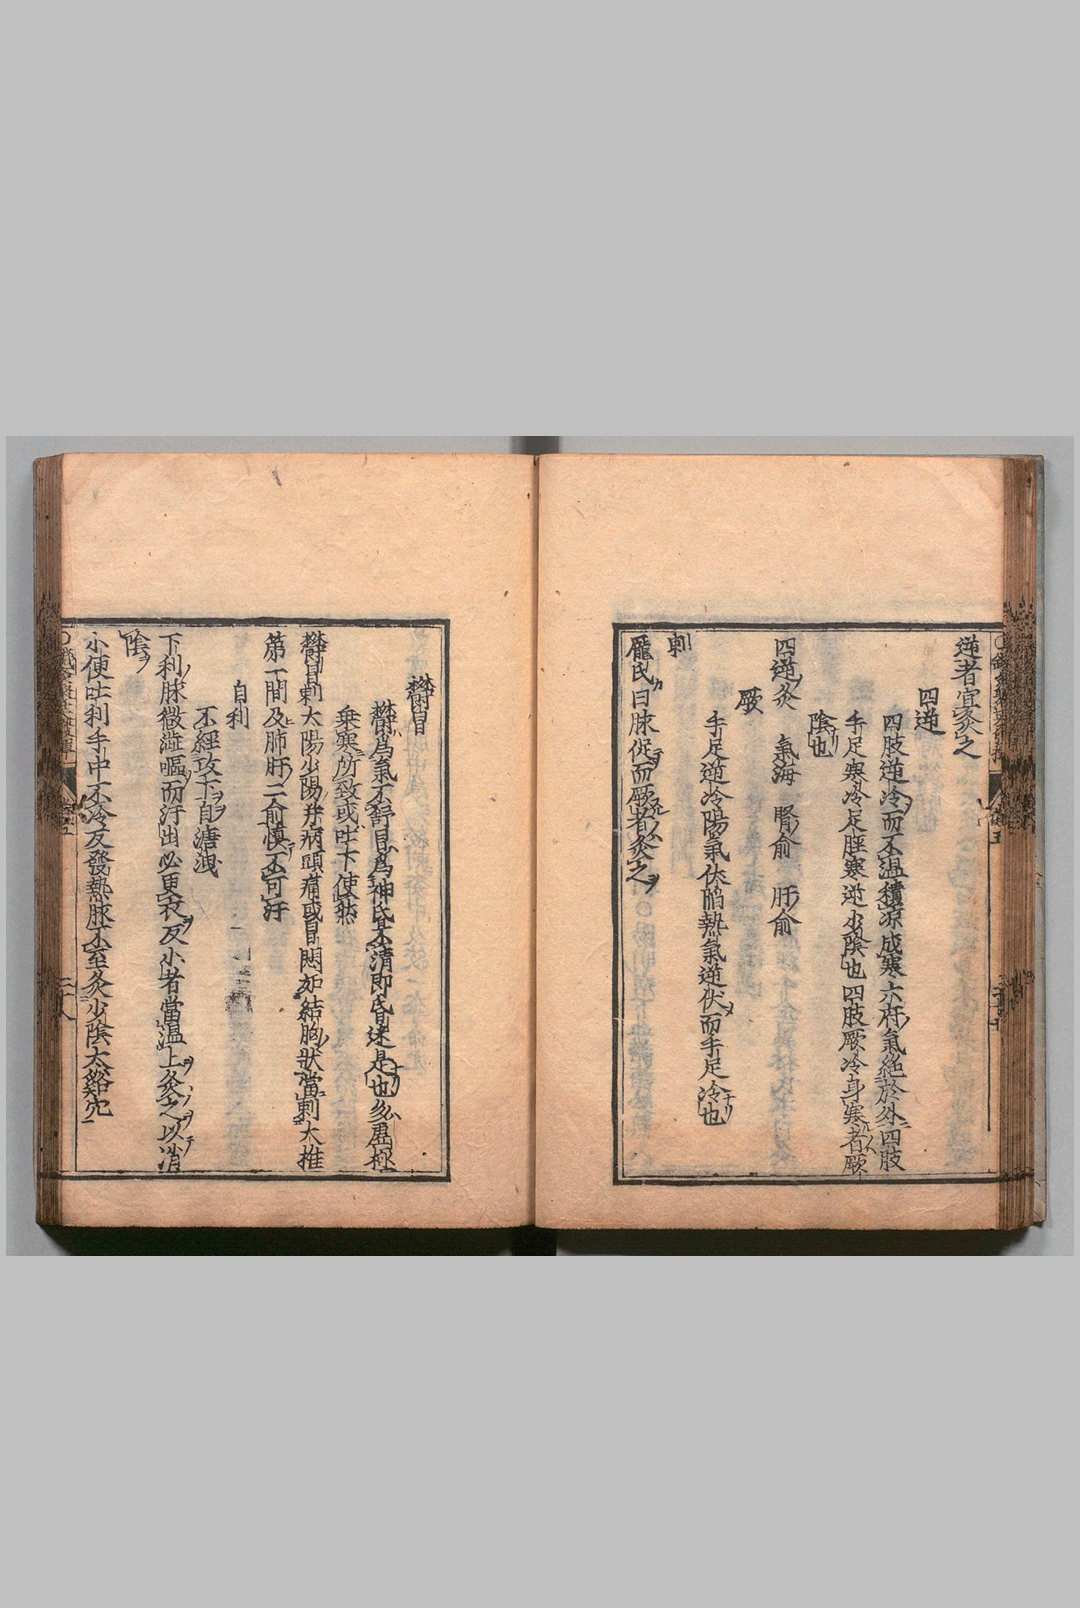 逆者宜灸之
四逆
四肢逆冷而不温積凉成寒六府氣絶於外四肢
手足寒冷足脛寒逆少陰也四肢厥冷身寒者厥
陰也
四逆灸 氣海 腎俞 肝俞
厥
手足逆冷陽氣伏陷熱氣逆伏而手足冷也
刺
龐氏曰脉促而厥者灸之
鬱冒
鬱為氣不舒冒為神氏不清即昏迷是也多虚極
乗寒所致或吐下使然
鬱冒刺太陽少陽井病頭痛或冒悶如結胸状當刺大推
第一間及肺肝二俞慎不可汗
自利
不經攻下自溏洩
下利脉微澁嘔而汗出必更衣反小者當温上灸之以消
陰
小便吐利手中不冷反發熱脉不至灸少陰太谿穴